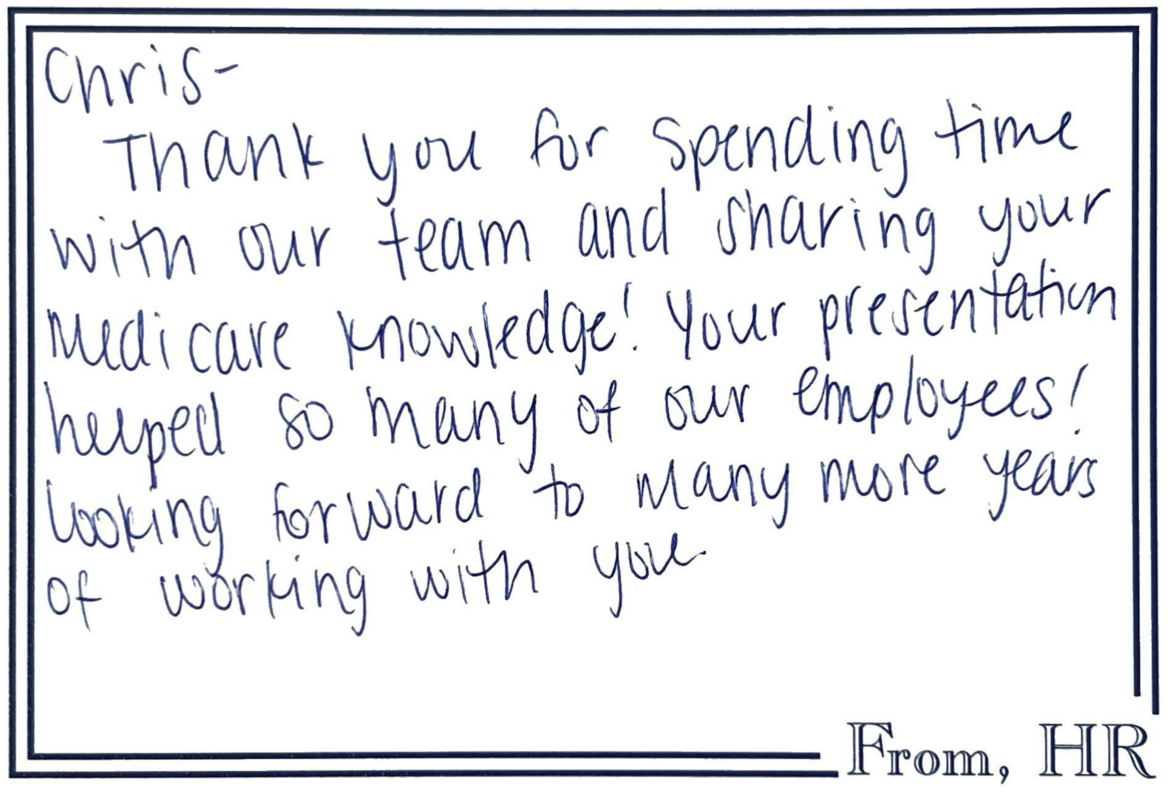 Chris-
Thank you for spending time
with our team and sharing your
Medicare knowledge! Your presentation
helped so many of our employees!
Looking forward to many more years
of working with you
From, HR